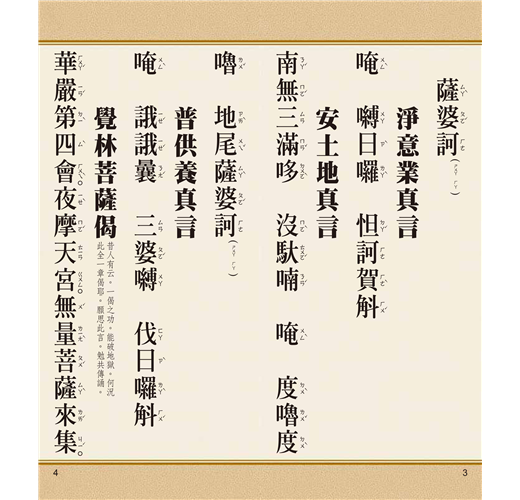 薩婆訶
淨意業真言
唵 嚩日囉 怛訶賀斛
安土地真言
南無三滿哆 沒馱喃 唵 度嚕度
嚕 地尾薩婆訶
普供養真言
唵 誐誐曩 三婆嚩 伐日囉斛
覺林菩薩偈
昔人有云。一偈之功。能破地獄。何況
此全一章偈耶。願思此言。勉共傳誦。
華嚴第四會夜摩天宮無量菩薩來集
3
4